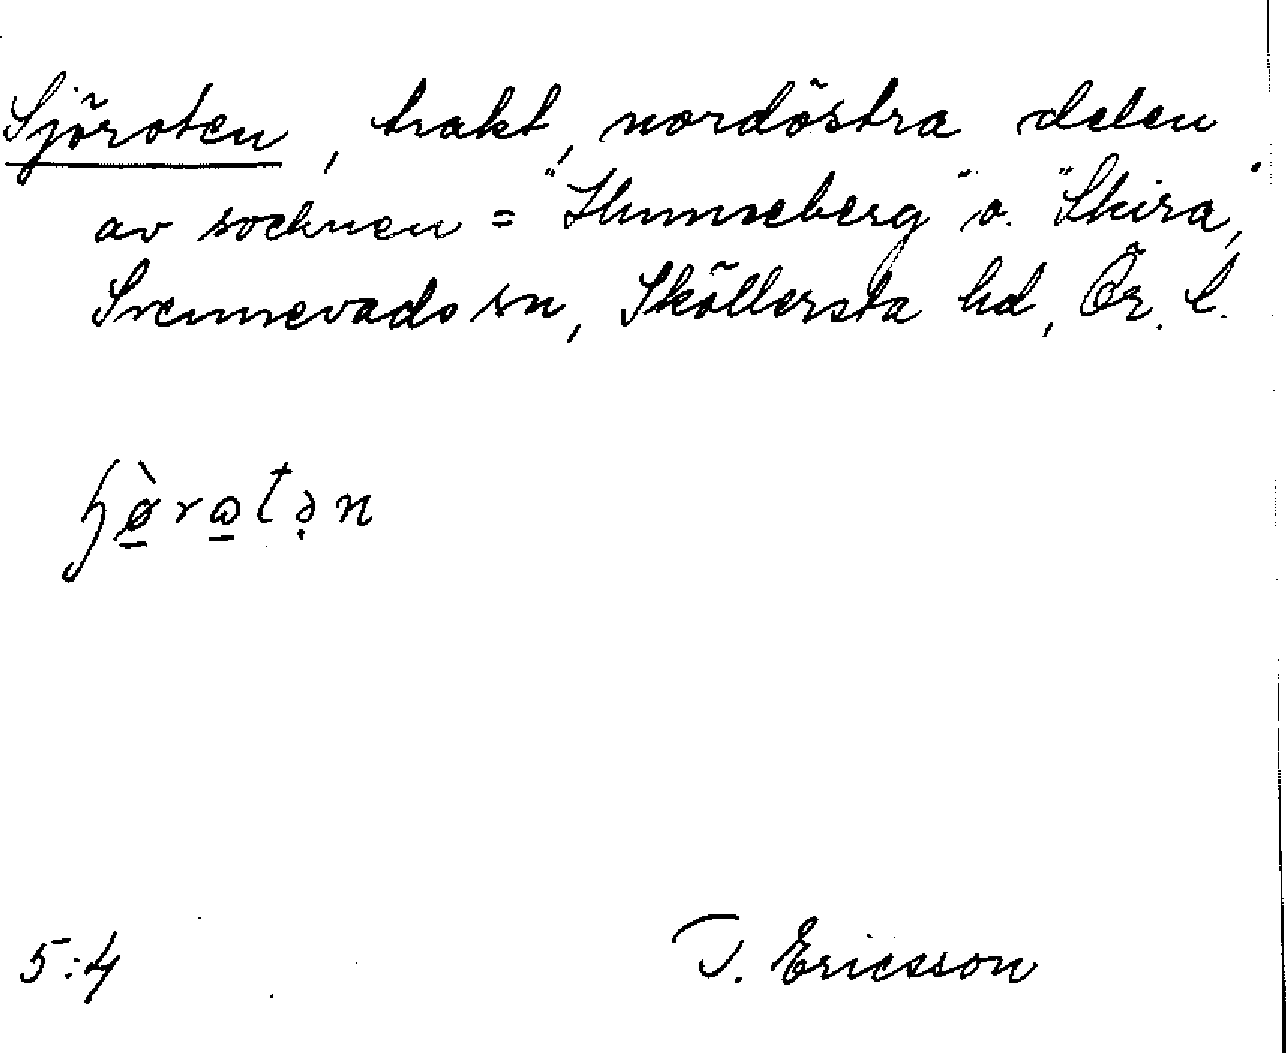 Sjöroten, trakt, nordöstra delen
av socknen = "Hunneberg" o. "Skira",
Svennevads sn, Sköllersta hd, Ör. l.
5:4
T. Ericsson